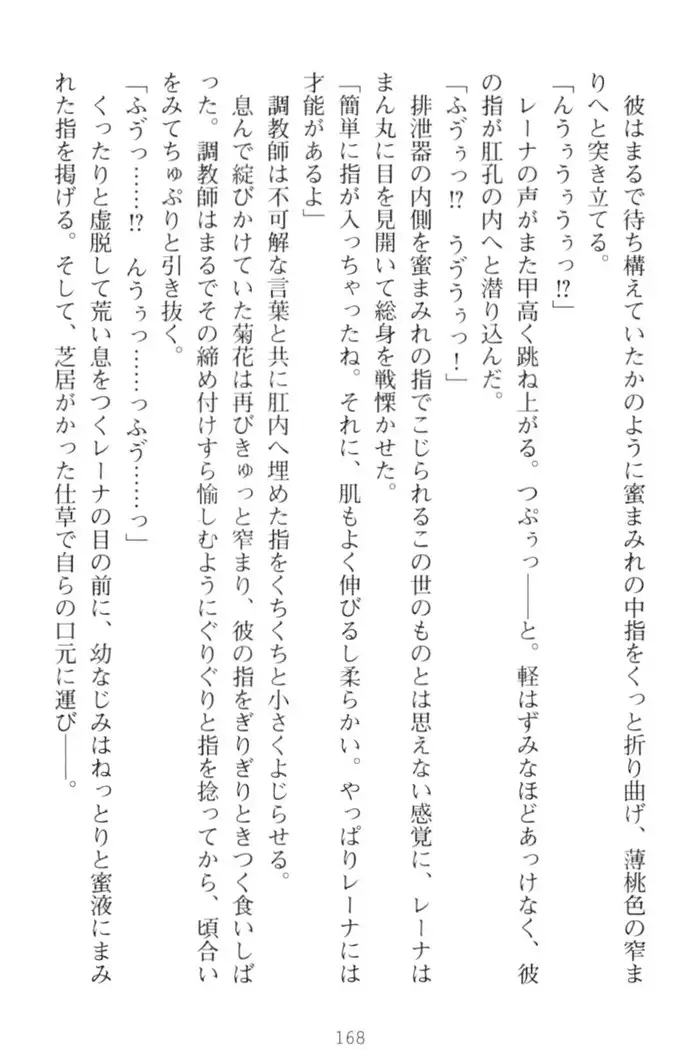 彼はまるで待ち構えていたかのように蜜まみれの中指をくっと折り曲げ、薄桃色の窄ま
りへと突き立てる。
「んうぅうぅうぅっ!?」
　レーナの声がまた甲高く跳ね上がる。つぷぅっ――と。軽はずみなほどあっけなく、彼
の指が肛孔の内へと潜り込んだ。
「ふゔぅっ!?　うゔうぅっ！」
　排泄器の内側を蜜まみれの指でこじられるこの世のものとは思えない感覚に、レーナは
まん丸に目を見開いて総身を戦慄かせた。
「簡単に指が入っちゃったね。それに、肌もよく伸びるし柔らかい。やっぱりレーナには
才能があるよ」
　調教師は不可解な言葉と共に肛内へ埋めた指をくちくちと小さくよじらせる。
　息んで綻びかけていた菊花は再びきゅっと窄まり、彼の指をぎりぎりときつく食いしば
った。調教師はまるでその締め付けすら愉しむようにぐりぐりと指を捻ってから、頃合い
をみてちゅぷりと引き抜く。
「ふゔっ……!?　んうぅっ……っふゔ……っ」
　くったりと虚脱して荒い息をつくレーナの目の前に、幼なじみはねっとりと蜜液にまみ
れた指を掲げる。そして、芝居がかった仕草で自らの口元に運び――。
168